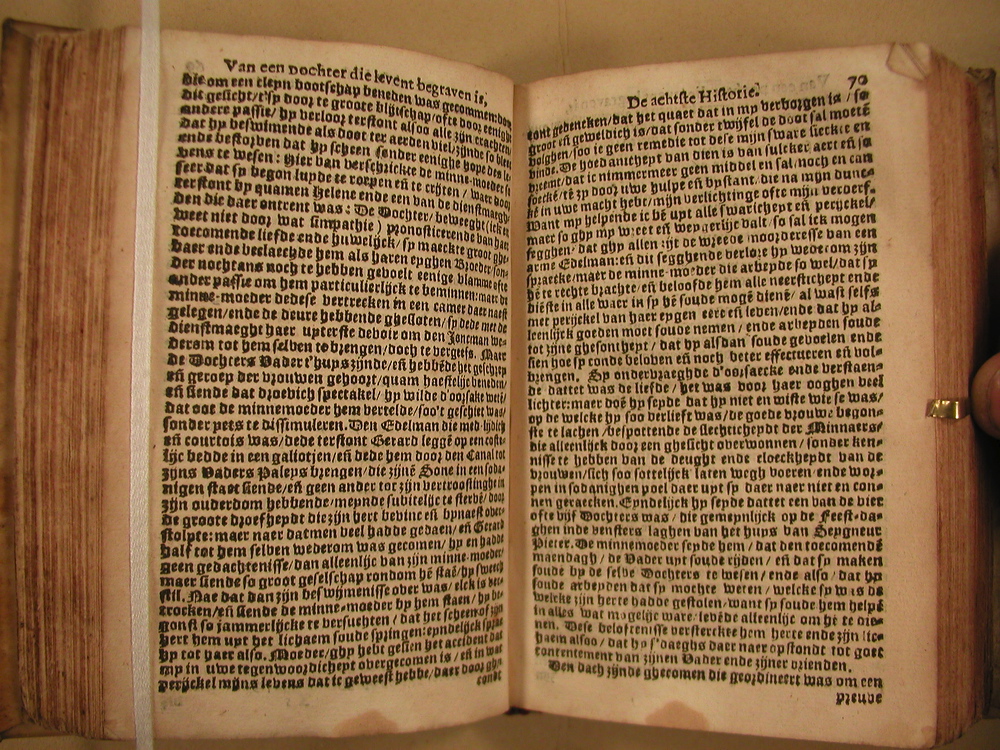 Van een dochter die levent begraven is,
die om een cleyn bootschap beneden was gecommen: den
dit gesicht/t'sp door te groote blijtschap/ofte door eenige
andere passie/ hy verloor terstont alsoo alle zijn crachten/
dat hy beswimende als doot ter aerden viel/zijnde so bleec
ende bestorven dat hy scheen sonder eenighe hope des le-
vens te wesen: Hier van verschrickte de minne-moeder so
seer/dat sy begon luyde te roepen eñ te crijten/ waer door
terstont by quamen Helene ende een van de dienstmaegh-
den die daer ontrent was: De Dochter/ beweeght (ick en
weet niet door wat simpathie) pronosticerende van haer
toecomende liefde ende huwelijck/ sy maeckte groot ghe-
baer ende beclaechde hem als haren eyghen Broeder/son-
der nochtans noch te hebben gevoelt eenige vlamme ofte
ander passie om hem particulierlijck te beminnen: maer de
minne-moeder dede se vertrecken in een camer daer naest
gelegen/ende de deure hebbende ghesloten/ sy dede met de
dienstmaeght haer uyterste debvoir om den Joncman we-
derom tot hem selven te brengen/doch te vergeefs. Maer
de Dochters Vader t'huys zijnde/eñ hebbēde het geschrey
eñ geroep der vrouwen gehoort/quam haestelijc beneden/
eñ siende dat droevich spectakel/ hy wilde d'oorsake wetē/
dat ooc de minnemoeder hem vertelde/soo't geschiet was/
sonder yets te dissimuleren. Den Edelman die med-lijdich
eñ courtois was/dede terstont Gerard leggē op een coste-
lijc bedde in een galiotjen/eñ dede hem door den Canal tot
zijns Vaders Paleys brengen/die zijnē Sone in een soda-
nigen staet siende/eñ geen ander tot zijn vertroostinghe in
zijn ouderdom hebbende/meynde subitelijc te stervē/ door
de groote droefheydt die zijn hert bevinc eñ bynaest over-
stolpte: maer naer datmen veel hadde gedaen/eñ Gerard
half tot hem selven wederom was gecomen/ hy en hadde
geen gedachtenisse/dan alleenlijc van zijn minne-moeder/
maer siende so groot geselschap rondom hē staē/hy sweech
stil. Nae dat dan zijn beswijmenisse over was/elck is ver-
trocken/eñ siende de minne-moeder by hem staen/ hy be-
gonst so jammerlijcke te versuchten / dat het scheen of zijn
hert hem uyt het lichaem soude springen: eyndelijck sprac
hy tot haer also. Moeder/ghy hebt gesien het accident dat
my in uwe tegenwoordicheyt overgecomen is / eñ in wat
perijckel mijns levens dat ic geweest hebbe/daer door ghy
condt
De achtste Historie. 70
cont gedencken/dat het quaet dat in my verborgen is / so
groot eñ geweldich is/dat sonder twijfel de doot sal moetē
volghen/soo ic geen remedie tot dese mijn sware sieckte en
vinde. De hoedanicheyt van dien is van sulcker aert eñ so
vreemt/dat ic nimmermeer geen middel en sal/noch en can
soeckē/tē zy door uwe hulpe eñ bystant/die na mijn dunc-
kē in uwe macht hebt/mijn verlichtinge ofte mijn verderf.
Want my helpende ic bē uyt alle swaricheyt eñ perijckel/
maer so ghy my wreet eñ weygerijc valt/ so sal ick mogen
segghen/ dat ghy alleen zijt de wreede moorderesse van een
arme Edelman: eñ dit segghende verloor hy wederom zijn
spraecke/maer de minne-moeder die arbeyde so wel/dat sy
hē te rechte brachte/ eñ beloofde hem alle neersticheyt ende
diēste in alle waer in sy hē soude mogē dienē/ al wast selfs
met perijckel van haer eygen eere eñ leven/ende dat hy al-
leenlijck goeden moet soude nemen / ende arbeyden soude
tot zijne ghesontheyt / dat hy alsdan soude gevoelen ende
sien hoe sy conde beloven eñ noch beter effectueren eñ vol-
brengen. Sy ondervraeghde d'oorsaecke ende verstaen-
de dattet was de liefde / het was door haer ooghen veel
lichter: maer doē hy seyde dat hy niet en wiste wie se was/
op de welcke hy soo verlieft was/ de goede vrouwe begon-
ste te lachen / bespottende de slechticheydt der Minnaers/
die alleenlijck door een ghesicht overwonnen / sonder ken-
nisse te hebben van de deught ende cloeckheydt van de
vrouwen/sich soo sottelijck laten wegh voeren ende wor-
pen in sodanighen poel daer uyt sy daer naer niet en con-
nen geraecken. Eyndelijck hy seyde dattet een van de vier
ofte vijf Dochters was / die gemeynlijck op de Feest-da-
ghen in de vensters laghen van het huys van Seygneur
Pieter. De minnemoeder seyde hem / dat den toecomendē
maendagh / de Vader uyt soude rijden / eñ dat sy maken
soude by de selve Dochters te wesen / ende also / dat hy
soude arbeyden dat sy mochte weten / welcke sy was de
welcke zijn herte hadde gestolen/want sy soude hem helpē
in alles wat mogelijc ware: levēde alleenlijc om hē te die-
nen. Dese beloftenisse versterckte hem herte ende zijn lic-
haem alsoo / dat hy s'daeghs daer naer opstondt tot goet
contentement van zijnen Vader ende zijner vrienden.
Den dach zijnde ghecomen die geordineert was om een
preuve